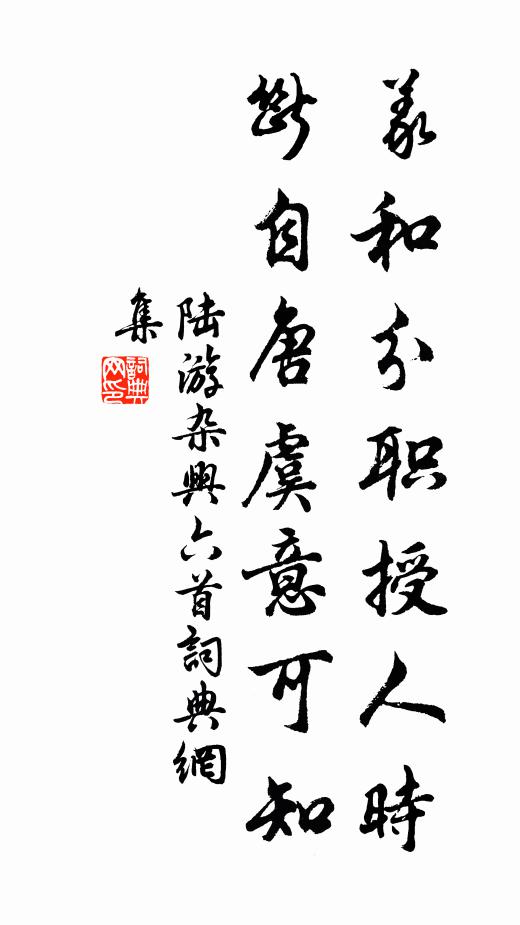 羲和分职授人時
斷自唐虞意可知
陆游杂興六首詞典網
集
詞典
网印